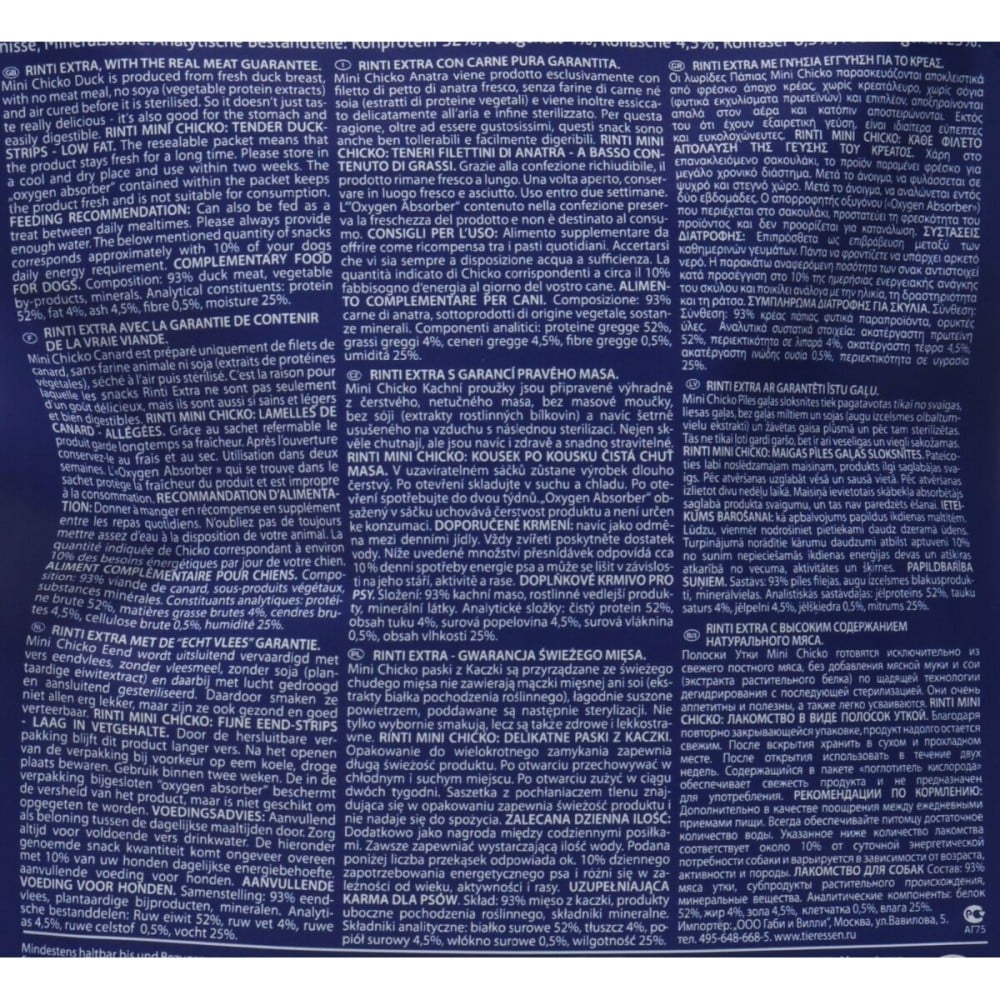 nisse, Mineralstoffe. Analytische Bestandteile: Rohprotein 52%, Rohasche 4,5%, Rohfaser 0,5%
GB RINTI EXTRA, WITH THE REAL MEAT GUARANTEE.
Mini Chicko Duck is produced from fresh duck breast,
with no meat meal, no soya (vegetable protein extracts)
and air cured before it is sterilised. So it doesn't just tas-
te really delicious - it's also good for the stomach and
easily digestible. RINTI MINI CHICKO: TENDER DUCK-
STRIPS - LOW FAT. The resealable packet means that
the product stays fresh for a long time. Please store in
a cool and dry place and use within two weeks. The
„oxygen absorber" contained within the packet keeps
the product fresh and is not suitable for consumption.
FEEDING RECOMMENDATION: Can also be fed as a
treat between daily mealtimes. Please always provide
enough water. The below mentioned quantity of snacks
corresponds approximately with 10% of your dogs
daily energy requirement. COMPLEMENTARY FOOD
FOR DOGS. Composition: 93% duck meat, vegetable
by-products, minerals. Analytical constituents: protein
52%, fat 4%, ash 4,5%, fibre 0,5%, moisture 25%.
F RINTI EXTRA AVEC LA GARANTIE DE CONTENIR
DE LA VRAIE VIANDE.
Mini Chicko Canard est préparé uniquement de filets de
canard, sans farine animale ni soja (extraits de protéines
végétales), séché à l'air puis stérilisé. C'est la raison pour
laquelle les snacks Rinti Extra ne sont pas seulement
d'un goût délicieux, mais ils sont aussi si sains et légers
et bien digestibles. RINTI MINI CHICKO: LAMELLES DE
CANARD - ALLÉGÉES. Grâce au sachet refermable le
produit garde longtemps sa fraîcheur. Après l'ouverture
conservez-le au frais et au sec. Utilisation dans deux
semaines. L'«Oxygen Absorber» qui se trouve dans le
sachet protège la fraîcheur du produit et est impropre
à la consommation. RECOMMANDATION D'ALIMENTA-
TION: Donner à manger en récompense en supplément
entre les repas quotidiens. N'oubliez pas de toujours
mettre assez d'eau à la disposition de votre animal. La
quantité indiquée de Chicko correspondant à environ
10% des besoins énergétiques par jour de votre chien.
ALIMENT COMPLÉMENTAIRE POUR CHIENS. Compo-
sition: 93% viande de canard, sous-produits végétaux,
substances minérales. Constituants analytiques: protéi-
ne brute 52%, matières grasse brutes 4%, cendres bru-
tes 4,5%, cellulose brute 0,5%, humidité 25%.
NL RINTI EXTRA MET DE "ECHT VLEES" GARANTIE.
Mini Chicko Eend wordt uitsluitend vervaardigd met
vers eendvlees, zonder vleesmeel, zonder soja (plan-
taardige eiwitextract) en daarbij met lucht gedroogd
en aansluitend gesteriliseerd. Daardoor smaken ze
niet allen erg lekker, maar zijn ze ook gezond en goed
verteerbaar. RINTI MINI CHICKO: FIJNE EEND-STRIPS
- LAAG IN VETGEHALTE. Door de hersluitbare ver-
pakking blijft dit product langer vers. Na het openen
van de verpakking bij voorkeur op een koele, droge
plaats bewaren. Gebruik binnen twee weken. De in de
verpakking bijgesloten "oxygen absorber" beschermt
de versheid van het product, maar is niet geschikt om
opgegeten te worden. VOEDINGSADVIES: Aanvullend
als beloning tussen de dagelijkse maaltijden door. Zorg
altijd voor voldoende vers drinkwater. De hieronder
genoemde snack kwantiteit komt ongeveer overeen
met 10% van uw honden dagelijkse energiebehoefte.
aanvullende voeding voor honden. AANVULLENDE
VOEDING VOOR HONDEN. Samenstelling: 93% eend-
vlees, plantaardige bijproducten, mineralen. Analyti-
sche bestanddelen: Ruw eiwit 52%, ruw vet 4%, ruwe
as 4,5%, ruwe celstof 0,5%, vocht 25%.
Mindestens haltbar bis und
I RINTI EXTRA CON CARNE PURA GARANTITA.
Mini Chicko Anatra viene prodotto esclusivamente con
filetto di petto di anatra fresco, senza farine di carne né
soia (estratti di proteine vegetali) e viene inoltre essicca-
to delicatamente all'aria e infine sterilizzato. Per questa
ragione, oltre ad essere gustosissimi, questi snack sono
anche ben tollerabili e facilmente digeribili. RINTI MINI
CHICKO: TENERI FILETTINI DI ANATRA - A BASSO CON-
TENUTO DI GRASSI. Grazie alla confezione richiudibile, il
prodotto rimane fresco a lungo. Una volta aperto, conser-
vare in luogo fresco e asciutto. Uso entro due settimane.
L'"Oxygen Absorber" contenuto nella confezione preser-
va la freschezza del prodotto e non è destinato al consu-
mo. CONSIGLI PER L'USO: Alimento supplementare da
offrire come ricompensa tra i pasti quotidiani. Accertarsi
che vi sia sempre a disposizione acqua a sufficienza. La
quantità indicata di Chicko corrispondenti a circa il 10%
fabbisogno d'energia al giorno del vostro cane. ALIMEN-
TO COMPLEMENTARE PER CANI. Composizione: 93%
carne di anatra, sottoprodotti di origine vegetale, sostan-
ze minerali. Componenti analitici: proteine gregge 52%,
grassi greggi 4%, ceneri gregge 4,5%, fibre gregge 0,5%,
umidità 25%.
CZ RINTI EXTRA S GARANCÍ PRAVÉHO MASA.
Mini Chicko Kachní proužky jsou připravené výhradně
z čerstvého, netučného masa, bez masové moučky,
bez sóji (extrakty rostlinných bílkovin) a navíc šetrně
usušeného na vzduchu s následnou sterilizací. Nejen sk-
věle chutnají, ale jsou navíc i zdravé a snadno stravitelné.
RINTI MINI CHICKO: KOUSEK PO KOUSKU ČISTÁ CHUŤ
MASA. V uzavíratelném sáčků zůstane výrobek dlouho
čerstvý. Po otevření skladujte v suchu a chladu. Po ote-
vření spotřebujte do dvou týdnů. „Oxygen Absorber" ob-
sažený v sáčku uchovává čerstvost produktu a není určen
ke konzumaci. DOPORUČENÉ KRMENÍ: navíc jako odmě-
na mezi denními jídly. Vždy zvíři poskytněte dostatek
vody. Níže uvedené množství přesnídávek odpovídá cca
10% denní spotřeby energie psa a může se lišit v závislos-
ti na jeho stáří, aktivitě a rase. DOPLŇKOVÉ KRMIVO PRO
PSY. Složení: 93% kachní maso, rostlinné vedlejší produk-
ty, minerální látky. Analytické složky: čistý protein 52%,
obsah tuku 4%, surová popelovina 4,5%, surová vláknina
0,5%, obsah vlhkosti 25%.
PL RINTI EXTRA - GWARANCJA ŚWIEŻEGO MIĘSA.
Mini Chicko paski z Kaczki są przyrządzane ze świeżego
chudego mięsa nie zawierają mączki mięsnej ani soi (eks-
trakty białka pochodzenia roślinnego), łagodnie suszone
powietrzem, poddawane są następnie sterylizacji. Nie
tylko wybornie smakują, lecz są także zdrowe i lekkostra-
wne. RINTI MINI CHICKO: DELIKATNE PASKI Z KACZKI.
Opakowanie do wielokrotnego zamykania zapewnia
długą świeżość produktu. Po otwarciu przechowywać w
chłodnym i suchym miejscu. Po otwarciu zużyć w ciągu
dwóch tygodni. Saszetka z pochłaniaczem tlenu znaj-
dująca się w opakowaniu zapewnia świeżość produktu i
nie nadaje się do spożycia. ZALECANA DZIENNA ILOŚĆ:
Dodatkowo jako nagroda między codziennymi posiłka-
mi. Zawsze zapewniać wystarczającą ilość wody. Podana
poniżej liczba przekąsek odpowiada ok. 10% dziennego
zapotrzebowania energetycznego psa i różni się w za-
leżności od wieku, aktywności i rasy. UZUPEŁNIAJĄCA
KARMA DLA PSÓW. Skład: 93% mięso z kaczki, produkty
uboczne pochodzenia roślinnego, składniki mineralne.
Składniki analityczne: białko surowe 52%, tłuszcz 4%, po-
piół surowy 4,5%, włókno surowe 0,5%, wilgotność 25%.
GR RINTI EXTRA ΜΕ ΓΝΗΣΙΑ ΕΓΓΥΗΣΗ ΓΙΑ ΤΟ ΚΡΕΑΣ.
Οι λωρίδες Πάπιας Mini Chicko παρασκευάζονται αποκλειστικά
από φρέσκο άπαχο κρέας, χωρίς κρεατάλευρο, χωρίς σόγια
(φυτικά εκχυλίσματα πρωτεϊνών) και επιπλέον, αποξηραίνονται
απαλά στον αέρα και κατόπιν αποστειρώνονται. Εκτός
του ότι έχουν εξαιρετική γεύση, είναι ιδιαίτερα εύπεπτες
και ευκολοχώνευτες. RINTI MINI CHICKO: ΚΑΘΕ ΦΙΛΕΤΟ
ΑΠΟΛΑΥΣΗ ΤΗΣ ΓΕΥΣΗΣ ΤΟΥ ΚΡΕΑΤΟΣ. Χάρη στο
επανακλειόμενο σακουλάκι, το προϊόν παραμένει φρέσκο για
μεγάλο χρονικό διάστημα. Μετά το άνοιγμα, να φυλάσσεται σε
ψυχρό και στεγνό χώρο. Μετά το άνοιγμα, να αναλώνεται εντός
δύο εβδομάδες. Ο απορροφητής οξυγόνου («Oxygen Absorber»)
που περιέχεται στο σακουλάκι, προστατεύει τη φρεσκότητα του
προϊόντος και δεν προορίζεται για κατανάλωση. ΣΥΣΤΑΣΕΙΣ
ΔΙΑΤΡΟΦΗΣ: Επιπρόσθετα ως επιβράβευση μεταξύ των
καθημερινών γευμάτων. Πάντα να φροντίζετε να υπάρχει αρκετό
νερό. Η παρακάτω αναφερόμενη ποσότητα των σνακ αντιστοιχεί
κατά προσέγγιση στο 10% της ημερήσιας ενεργειακής ανάγκης
του σκύλου και ποικίλει ανάλογα με την ηλικία, τη δραστηριότητα
και τη ράτσα. ΣΥΜΠΛΗΡΩΜΑ ΔΙΑΤΡΟΦΗΣ ΓΙΑ ΣΚΥΛΙΑ. Σύνθεση:
Σύνθεση: 93% κρέας πάπιας, φυτικά παραπροϊόντα, ορυκτές
ύλες. Αναλυτικά συστατικά στοιχεία: ακατέργαστη πρωτεΐνη
52%, περιεκτικότητα σε λιπαρά 4%, ακατέργαστη τέφρα 4,5%,
ακατέργαστη ινώδης ουσία 0,5%, περιεκτικότητα σε υγρασία
25%.
LV RINTI EXTRA AR GARANTĒTI ĪSTU GAĻU.
Mini Chicko Pīles gaļas sloksnītes tiek pagatavotas tikai no svaigas,
liesas gaļas, bez gaļas miltiem un sojas (augu izcelsmes olbaltum-
vielu ekstrakti) un žāvētas gaisa plūsmā un pēc tam sterilizētas.
Tās ne tikai ļoti gardi garšo, bet ir arī veselīgas un viegli sakožamas.
RINTI MINI CHICKO: MAIGAS PĪLES GAĻAS SLOKSNĪTES. Pateico-
ties labi noslēdzamajam maisiņam, produkts ilgi saglabājas sva-
igs. Pēc atvēršanas uzglabāt vēsā un sausā vietā. Pēc atvēršanas
izlietot divu nedēļu laikā. Maisiņā ievietotais skābekļa absorbētājs
saglabā produkta svaigumu, un tas nav paredzēts ēšanai. IETEI-
KUMS BAROŠANAI: kā apbalvojums papildus ikdienas maltītēm.
Lūdzu, vienmēr nodrošiniet pietiekami daudz dzeramā ūdens.
Turpinājumā norādītie kārumu daudzumi atbilst aptuveni 10%
no sunim nepieciešamās ikdienas enerģijas devas un atšķiras
atkarībā no vecuma, aktivitātes un šķirnes. PAPILDBARĪBA
SUŅIEM. Sastāvs: 93% pīles filejas, augu izcelsmes blakusproduk-
ti, minerālvielas. Analistiskās sastāvdaļas: jēlproteīns 52%, tauku
saturs 4%, jēlpelni 4,5%, jēlšķiedra 0,5%, mitrums 25%.
RUS RINTI EXTRA С ВЫСОКИМ СОДЕРЖАНИЕМ
НАТУРАЛЬНОГО МЯСА.
Полоски Утки Mini Chicko готовятся исключительно из
свежего постного мяса, без добавления мясной муки и сои
(экстракта растительного белка) по щадящей технологии
дегидрирования с последующей стерилизацией. Они очень
аппетитны и полезны, а также легко усваиваются. RINTI MINI
CHICKO: ЛАКОМСТВО В ВИДЕ ПОЛОСОК УТКОЙ. Благодаря
повторно закрывающейся упаковке, продукт надолго остается
свежим. После вскрытия хранить в сухом и прохладном
месте. После открытия использовать в течение двух
недель. Содержащийся в пакете «поглотитель кислорода»
обеспечивает свежесть продукта и не предназначен
для употребления. РЕКОМЕНДАЦИИ ПО КОРМЛЕНИЮ:
Дополнительно в качестве поощрения между ежедневными
приемами пищи. Всегда обеспечивайте питомцу достаточное
количество воды. Указанное ниже количество лакомства
соответствует около 10% от суточной энергетической
потребности собаки и варьируется в зависимости от возраста,
активности и породы. ЛАКОМСТВО ДЛЯ СОБАК Состав: 93%
мяса утки, субпродукты растительного происхождения,
минеральные вещества. Аналитические компоненты: белок
52%, жир 4%, зола 4,5%, клетчатка 0,5%, влага 25%.
Импортёр: „ООО Габи и Вилли", Москва, ул.Вавилова, 5.
тел. 495-648-668-5. www.tieressen.ru
АГ75